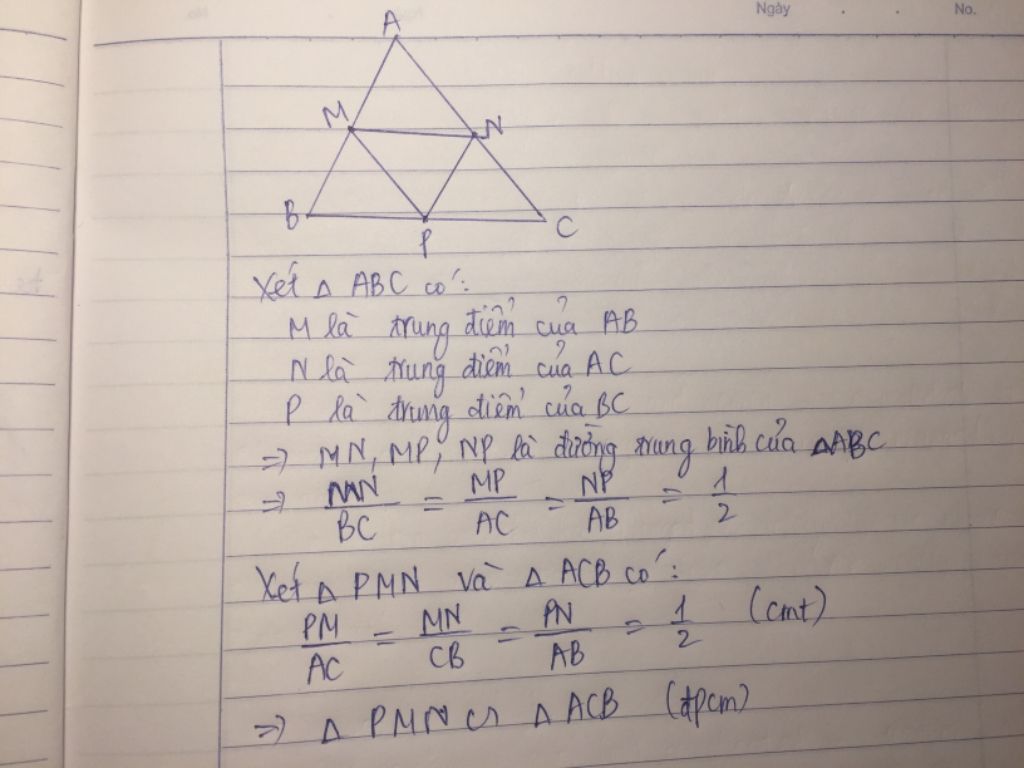 Ngày . . No.
A
M N
B P C
Xét △ ABC có:
M là trung điểm của AB
N là trung điểm của AC
P là trung điểm của BC
=> MN, MP, NP là đường trung bình của △ABC
=> MN/BC = MP/AC = NP/AB = 1/2
Xét △ PMN và △ ACB có:
PM/AC = MN/CB = PN/AB = 1/2 (cmt)
=> △ PMN ∽ △ ACB (đpcm)